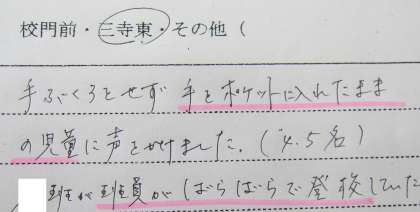 校門前・三寺東・その他（
手ぶくろをせず 手をポケットに入れたまま
の児童に声をかけました。（4.5名）
班が班員がばらばらで登校していた